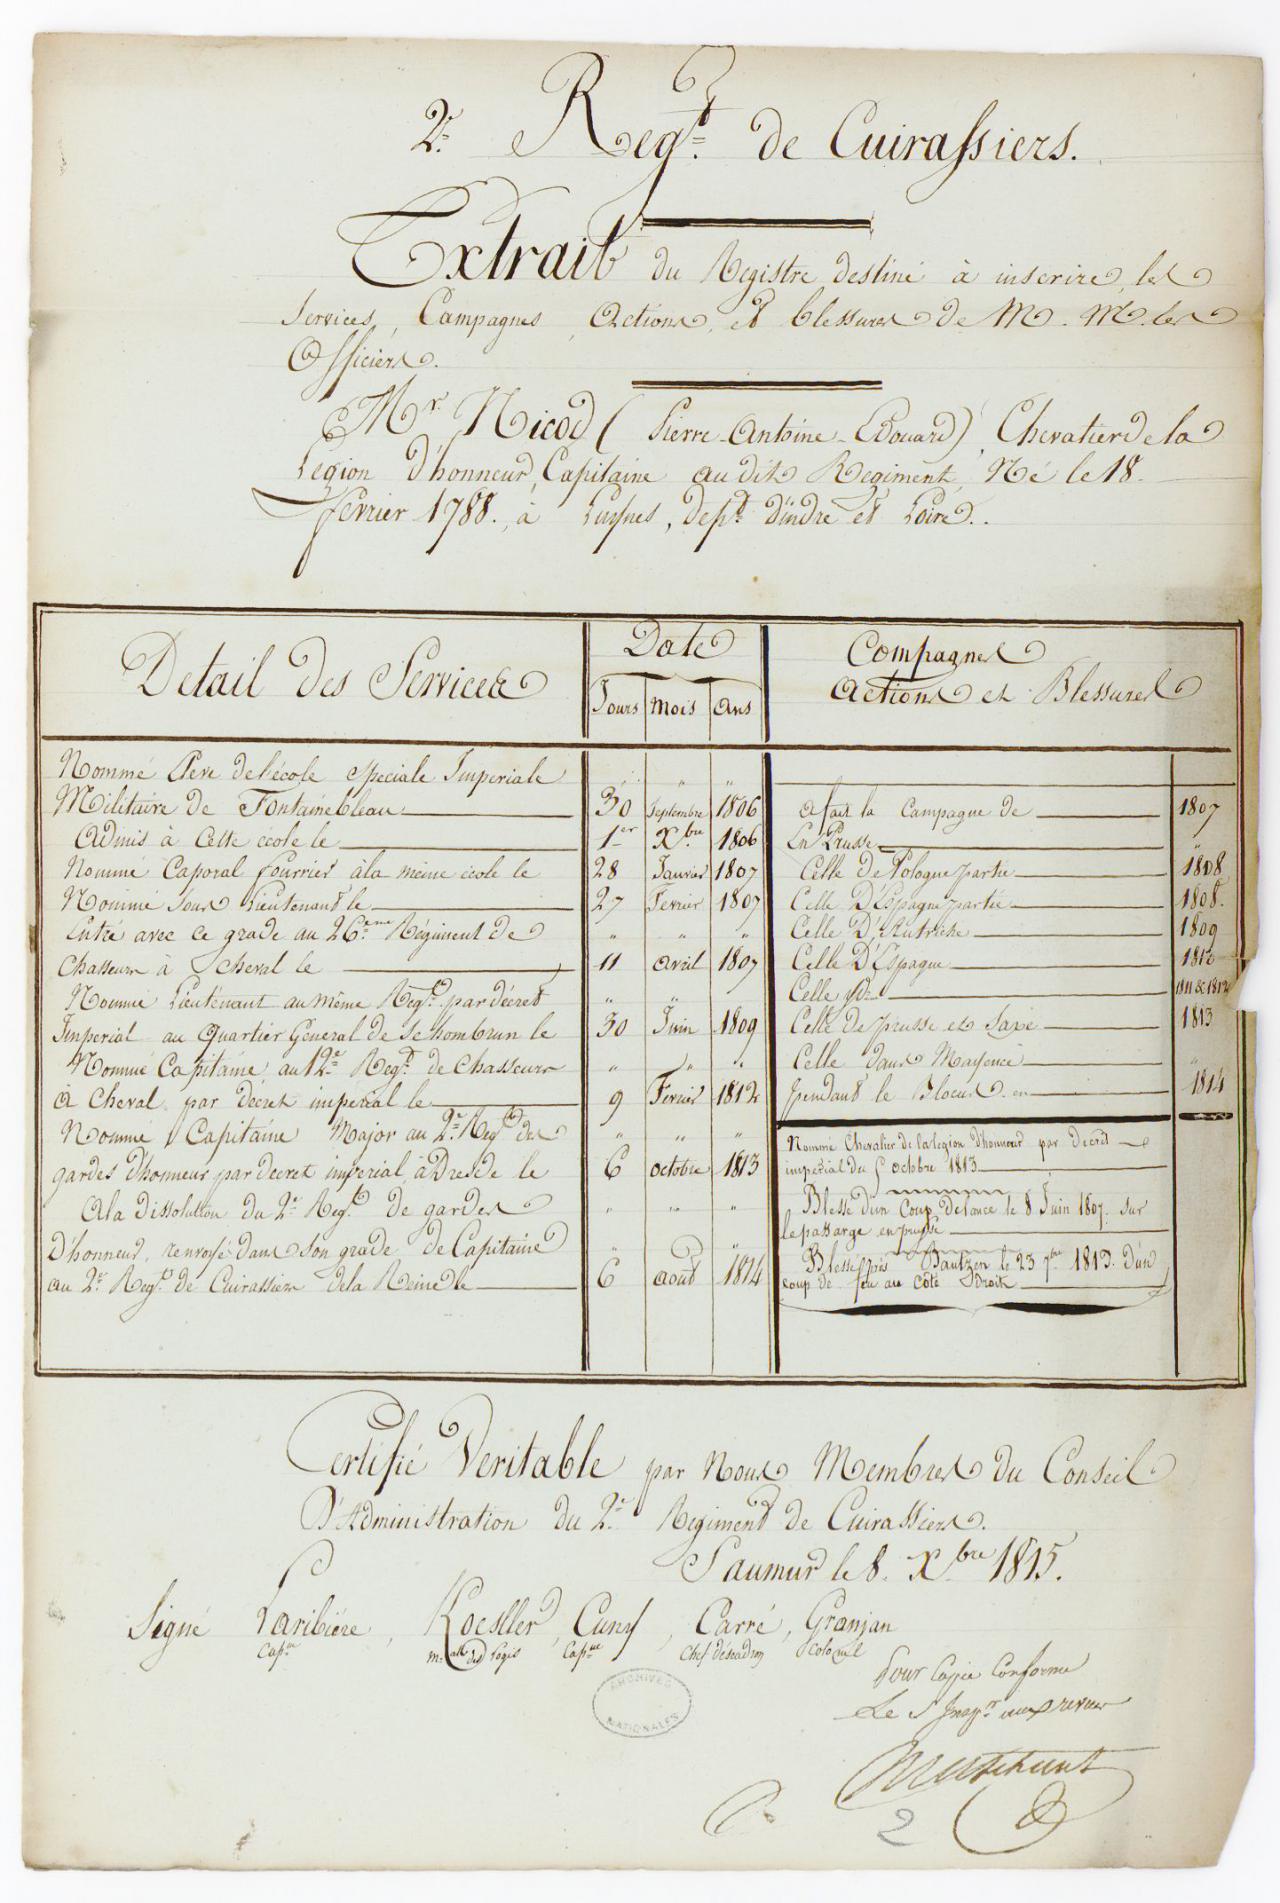 2e. Regt. de Cuirassiers.
Extrait du Registre destiné à inscrire les
Services, Campagnes, Actions, et blessures de M. M. les
Officiers.
Mr. Nicod (Pierre-Antoine-Edouard), Chevalier de la
Légion d'honneur, Capitaine au dit Regiment, Né le 18.
fevrier 1788. à Luynes, dept. d'indre et Loire.
Detail des Services
Date
Jours Mois Ans
Campagnes
Actions et Blessures
Nommé Eleve de l'école speciale Imperiale
Militaire de Fontainebleau 30 Septembre 1806
Admis à cette école le 1er Xbre 1806
Nommé Caporal fourrier à la même école le 28 Janvier 1807
Nommé Sous Lieutenant le 27 Fevrier 1807
Entré avec ce grade au 26eme Régiment de
Chasseurs à cheval le 11 avril 1807
Nommé Lieutenant au même Regt. par décret
Imperial au Quartier Général de Schombrun le 30 Juin 1809
Nommé Capitaine au 12e Regt. de Chasseurs
à Cheval par décret impérial le 9 Fevrier 1812
Nommé Capitaine Major au 2e. Regt. des
gardes d'honneur par decret impérial à Dresde le 6 octobre 1813
A la dissolution du 2e Regt. de gardes
D'honneur, renvoyé dans son grade de Capitaine
au 2e. Regt. de Cuirassiers de la Reine le 6 aout 1814
a fait la Campagne de 1807
En Prusse
Celle De Pologne partie 1808
Celle D'Espagne partie 1808.
Celle D'Autriche 1809
Celle D'Espagne 1810
Celle id. 1811 & 1812
Celle de prusse et Saxe 1813
Celle dans Mayence
pendant le Blocus en 1814
Nommé Chevalier de la legion d'honneur par decret
imperial du 5 octobre 1813
Blessé d'un Coup de lance le 8 Juin 1807. sur
le passarge en prusse
Blessé près Bautzen le 23 7bre 1813. d'un
coup de feu au côté Droit
Certifié Veritable par Nous Membres du Conseil
D'Administration du 2e. Regiment de Cuirassiers.
Saumur le 8. Xbre 1815.
Signé Laribière, Koesller, Cuny, Carré, Granjan
Capne mal des Logis Capne Chef d'éscadron Colonel
Pour Copie Conforme
Le S Inspr. aux revues
ARCHIVES
NATIONALES
2